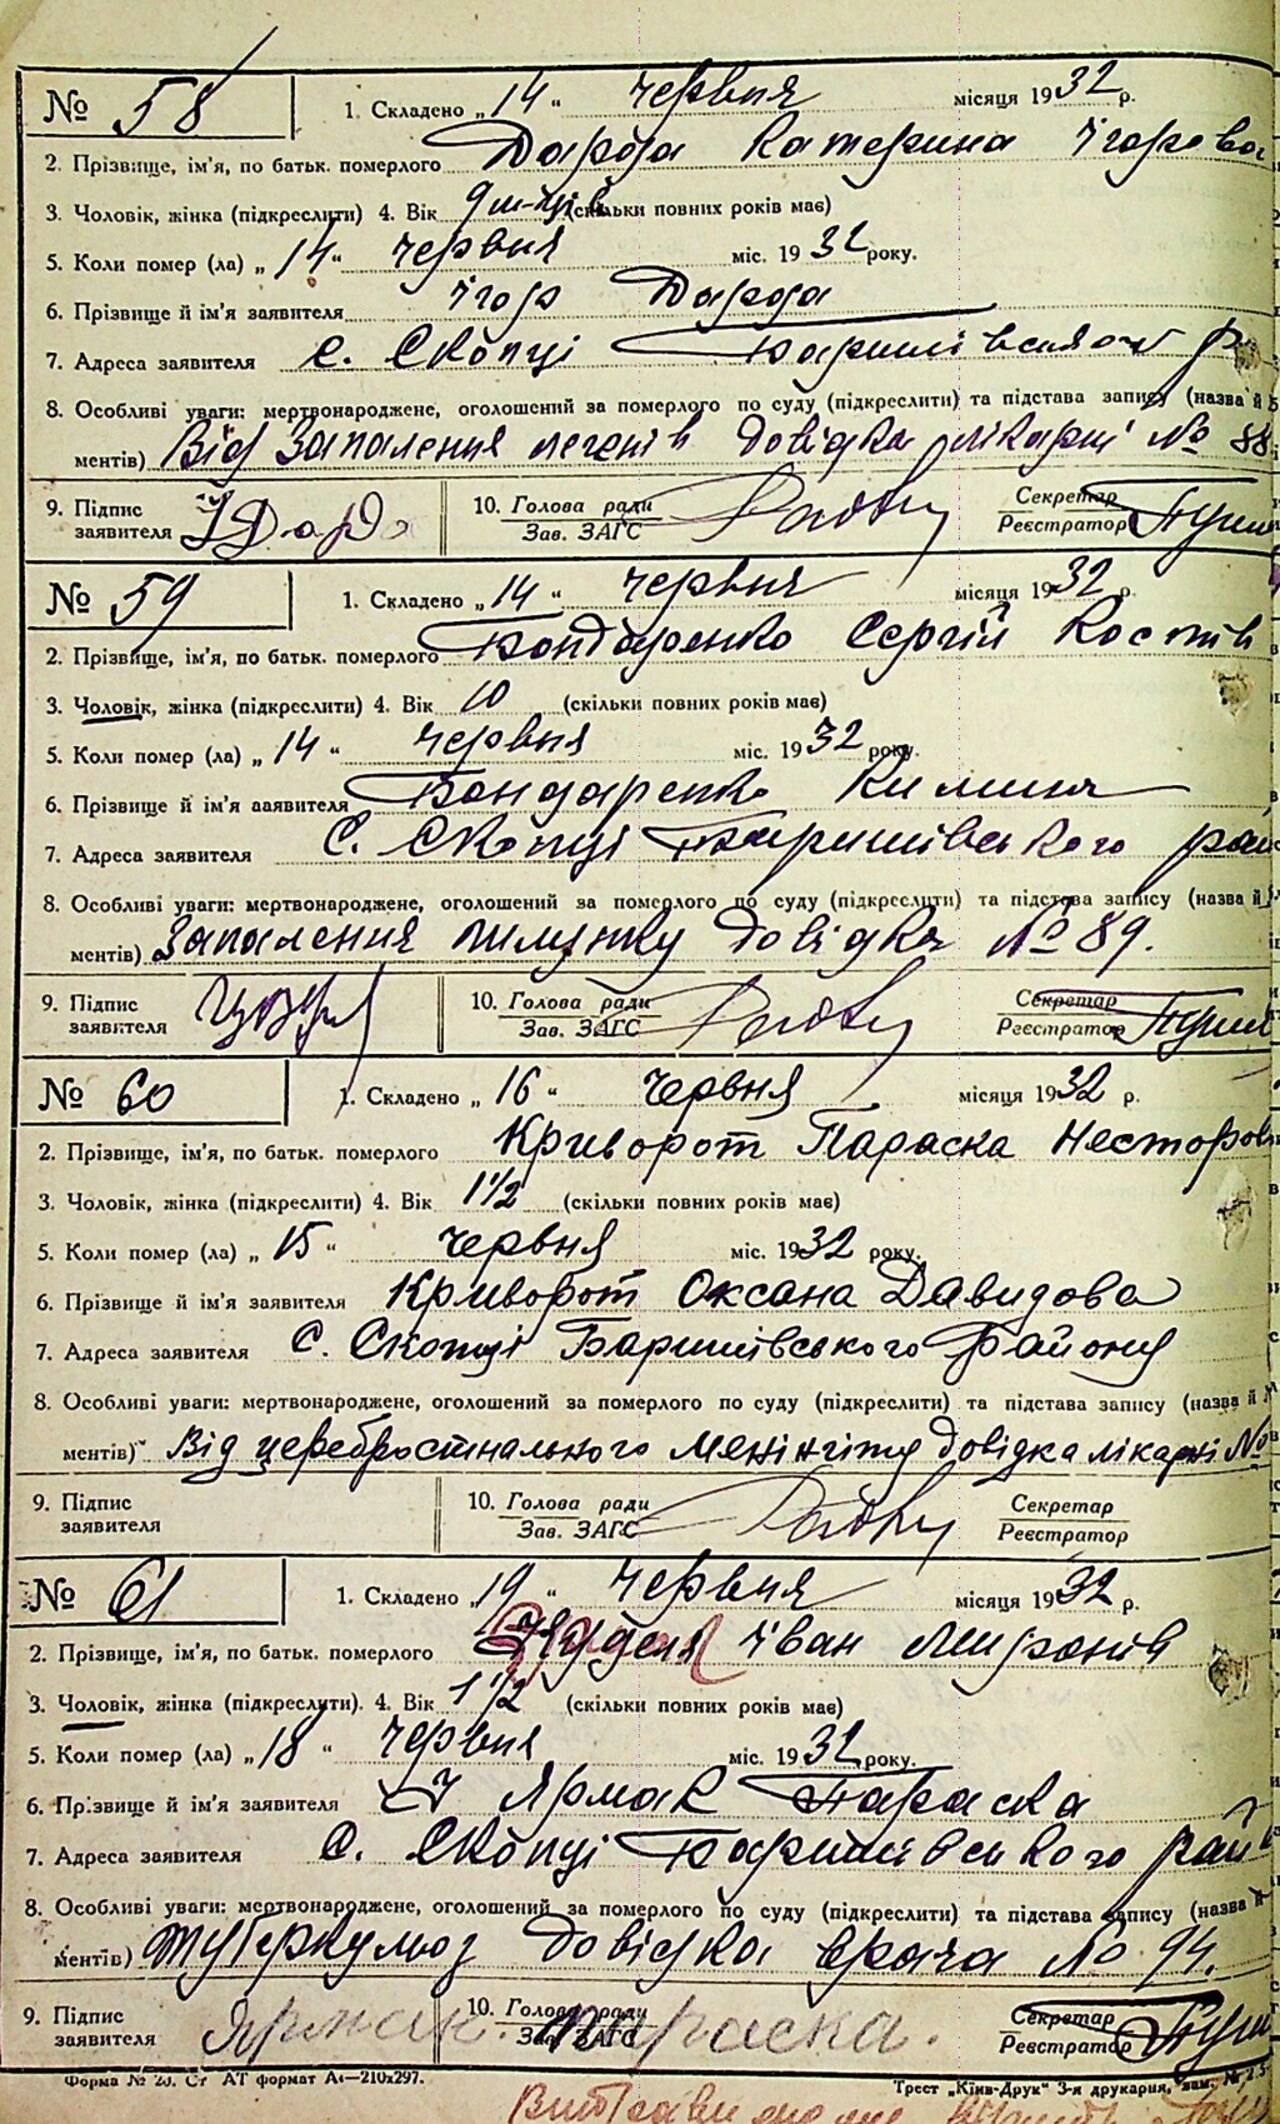 № 58 1. Складено „14“ червня місяця 1932 р.
2. Прізвище, ім'я, по батьк. померлого Дарда Катерина Ігорова
3. Чоловік, жінка (підкреслити) 4. Вік 9 м-ців (скільки повних років має)
5. Коли помер (ла) „14“ червня міс. 1932 року.
6. Прізвище й ім'я заявителя Ігор Дарда
7. Адреса заявителя с. Скопці Баришівського р
8. Особливі уваги: мертвонароджене, оголошений за померлого по суду (підкреслити) та підстава запису (назва й
ментів) Від Запалення легенів довідка лікарні № 88
9. Підпис 10. Голова ради Секретар
заявителя Дарда Зав. ЗАГС Реєстратор
№ 59 1. Складено „14“ червня місяця 1932 р.
2. Прізвище, ім'я, по батьк. померлого Бондаренко Сергій Костів
3. Чоловік, жінка (підкреслити) 4. Вік 10 (скільки повних років має)
5. Коли помер (ла) „14“ червня міс. 1932 року.
6. Прізвище й ім'я заявителя Бондаренко Килина
7. Адреса заявителя с. Скопці Баришівського рай
8. Особливі уваги: мертвонароджене, оголошений за померлого по суду (підкреслити) та підстава запису (назва й
ментів) Запалення шлунку довідка № 89.
9. Підпис 10. Голова ради Секретар
заявителя Зав. ЗАГС Реєстратор
№ 60 1. Складено „16“ червня місяця 1932 р.
2. Прізвище, ім'я, по батьк. померлого Криворот Параска Несторов
3. Чоловік, жінка (підкреслити) 4. Вік 1 1/2 (скільки повних років має)
5. Коли помер (ла) „15“ червня міс. 1932 року.
6. Прізвище й ім'я заявителя Криворот Оксана Давидова
7. Адреса заявителя с. Скопці Баришівського Району
8. Особливі уваги: мертвонароджене, оголошений за померлого по суду (підкреслити) та підстава запису (назва й
ментів) Від церебростнального менінгіту довідка лікарні №
9. Підпис 10. Голова ради Секретар
заявителя Зав. ЗАГС Реєстратор
№ 61 1. Складено „19“ червня місяця 1932 р.
2. Прізвище, ім'я, по батьк. померлого Іван Миронів
3. Чоловік, жінка (підкреслити). 4. Вік 1 1/2 (скільки повних років має)
5. Коли помер (ла) „18“ червня міс. 1932 року.
6. Прізвище й ім'я заявителя Ярмак Параска
7. Адреса заявителя с. Скопці Баришівського рай
8. Особливі уваги: мертвонароджене, оголошений за померлого по суду (підкреслити) та підстава запису (назва й
ментів) туберкульоз довідка врача № 94.
9. Підпис 10. Голова ради Секретар
заявителя Ярмак Параска. Зав. ЗАГС Реєстратор
Форма № 20. Ст АТ формат А4—210х297. Трест „Київ-Друк“ 3-я друкарня, зам. №